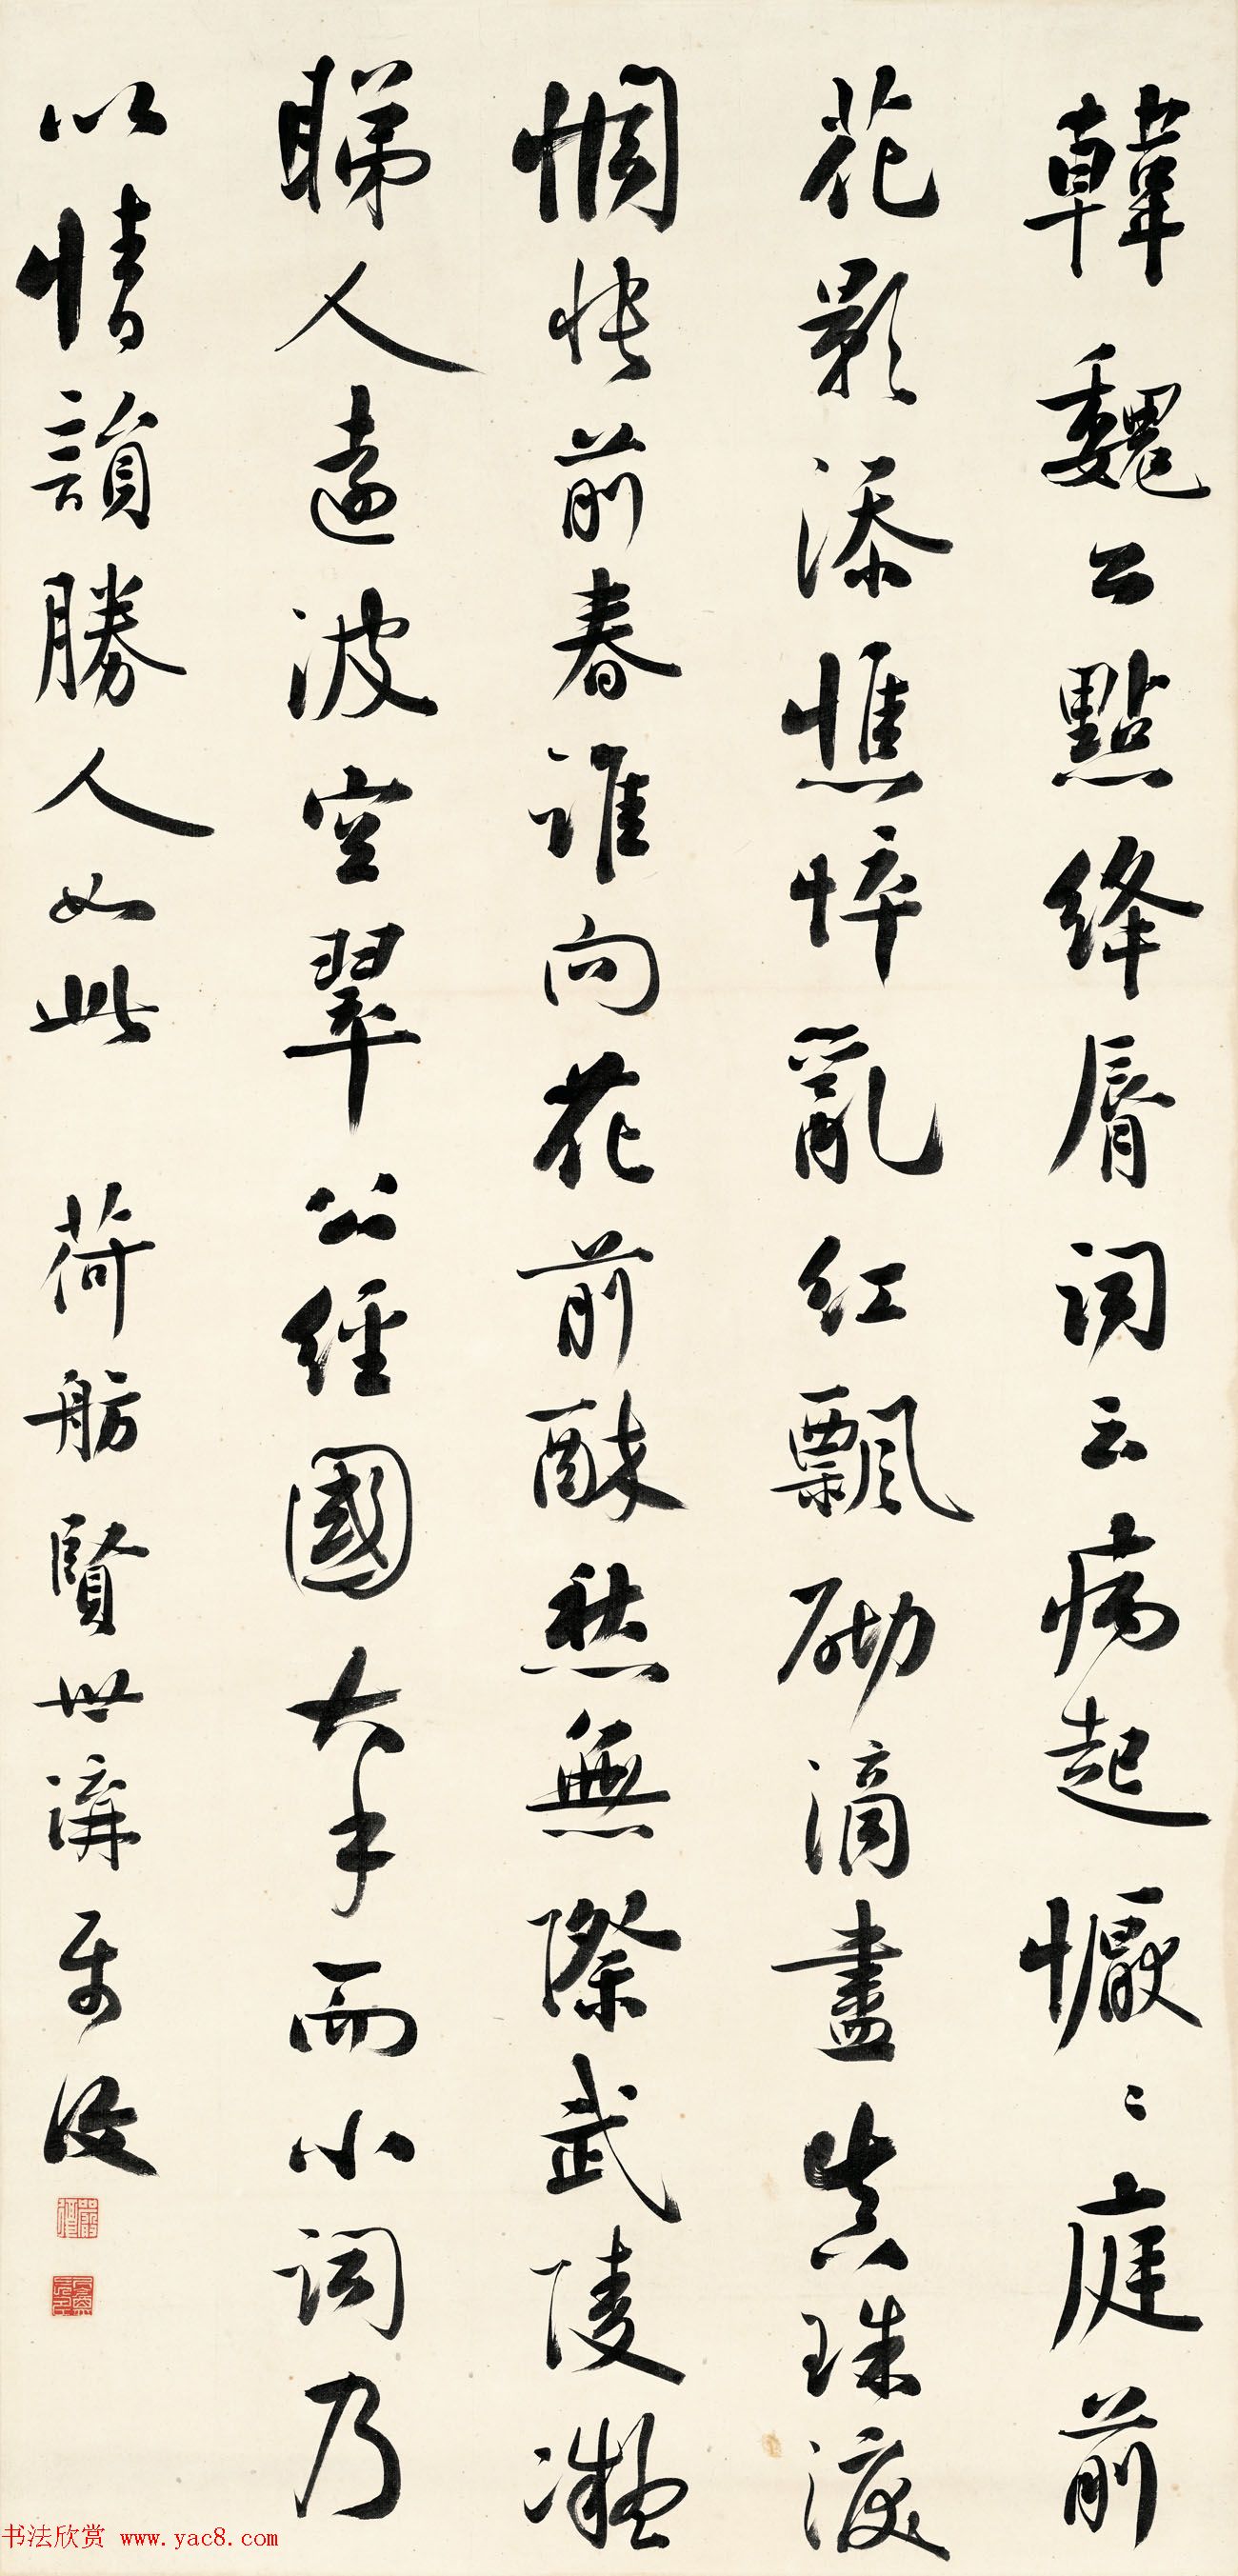 韓魏公點絳脣詞云病起懨〻庭前
花影添憔悴亂紅飄砌滴盡真珠淚
惆悵前春誰向花前醉愁無際武陵凝
睇人遠波空翠公經國大手而小詞乃
以情韻勝人如此
荷舫賢世講屬 後
书法欣赏 www.yac8.com